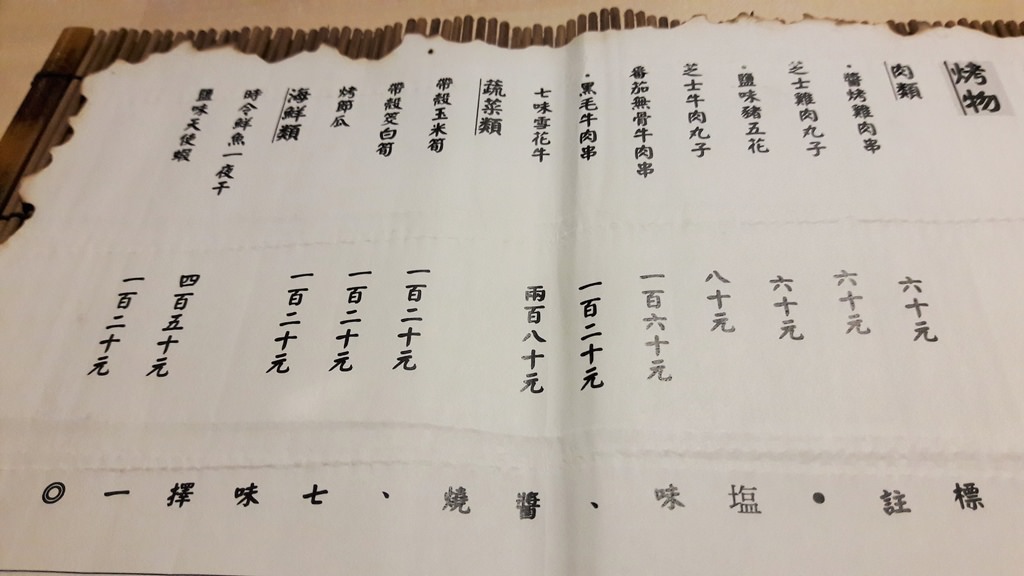 烤物
肉類
醬烤雞肉串
六十元
芝士雞肉丸子
六十元
•鹽味豬五花
六十元
芝士牛肉丸子
八十元
番茄無骨牛肉串
一百六十元
•黑毛牛肉串
一百二十元
七味雪花牛
兩百八十元
蔬菜類
帶殼玉米筍
一百二十元
帶殼茭白筍
一百二十元
烤節瓜
一百二十元
海鮮類
時令鮮魚一夜干
四百五十元
鹽味天使蝦
一百二十元
標註●塩味、醬燒、七味擇一◎